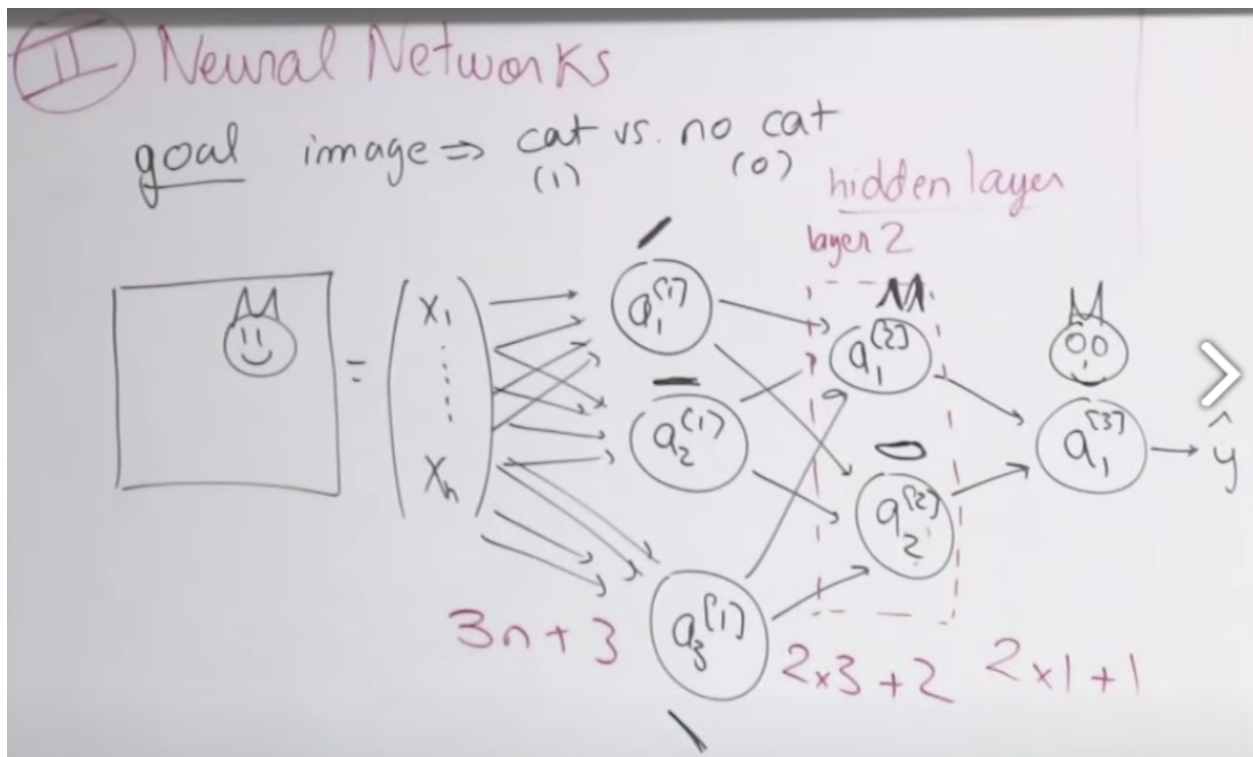 II Neural Networks
goal image ⇒ cat vs. no cat
(1) (0)
hidden layer
layer 2
= x₁
⋮
xₙ
a₁^[1]
a₂^[1]
a₃^[1]
a₁^[2]
a₂^[2]
a₁^[3]
ŷ
3n + 3
2x3 + 2
2x1 + 1